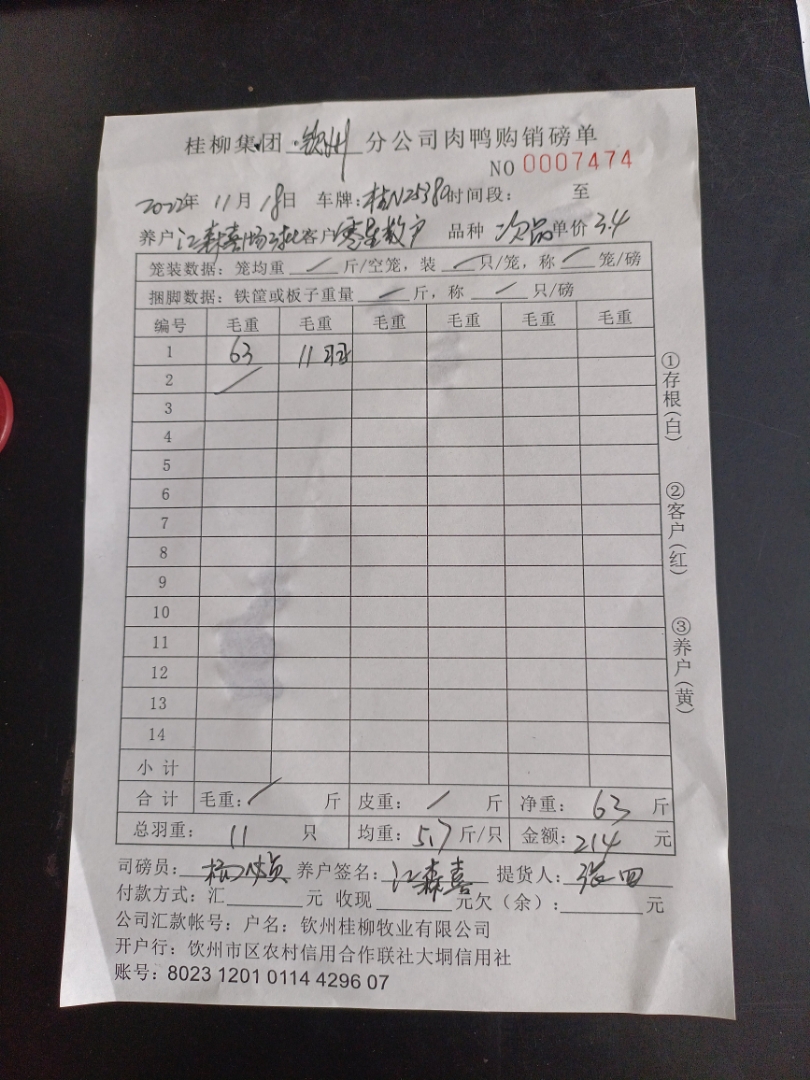 桂柳集团 钦州 分公司肉鸭购销磅单
NO 0007474
2022年 11月 18日 车牌：桂N25389 时间段： 至
养户 江森喜 客户 零星散户 品种 次品 单价 3.4
笼装数据：笼均重 / 斤/空笼，装 / 只/笼，称 / 笼/磅
捆脚数据：铁筐或板子重量 / 斤，称 / 只/磅
编号 毛重 毛重 毛重 毛重 毛重 毛重
1 63 11羽
2 /
3
4
5
6
7
8
9
10
11
12
13
14
小计
合计 毛重：/ 斤 皮重：/ 斤 净重：63 斤
总羽重：11 只 均重：5.7 斤/只 金额：214 元
司磅员： 养户签名：江森喜 提货人：张四
付款方式：汇 元 收现 元欠（余）： 元
公司汇款帐号：户名：钦州桂柳牧业有限公司
开户行：钦州市区农村信用合作联社大垌信用社
账号：8023 1201 0114 4296 07
①存根（白）
②客户（红）
③养户（黄）